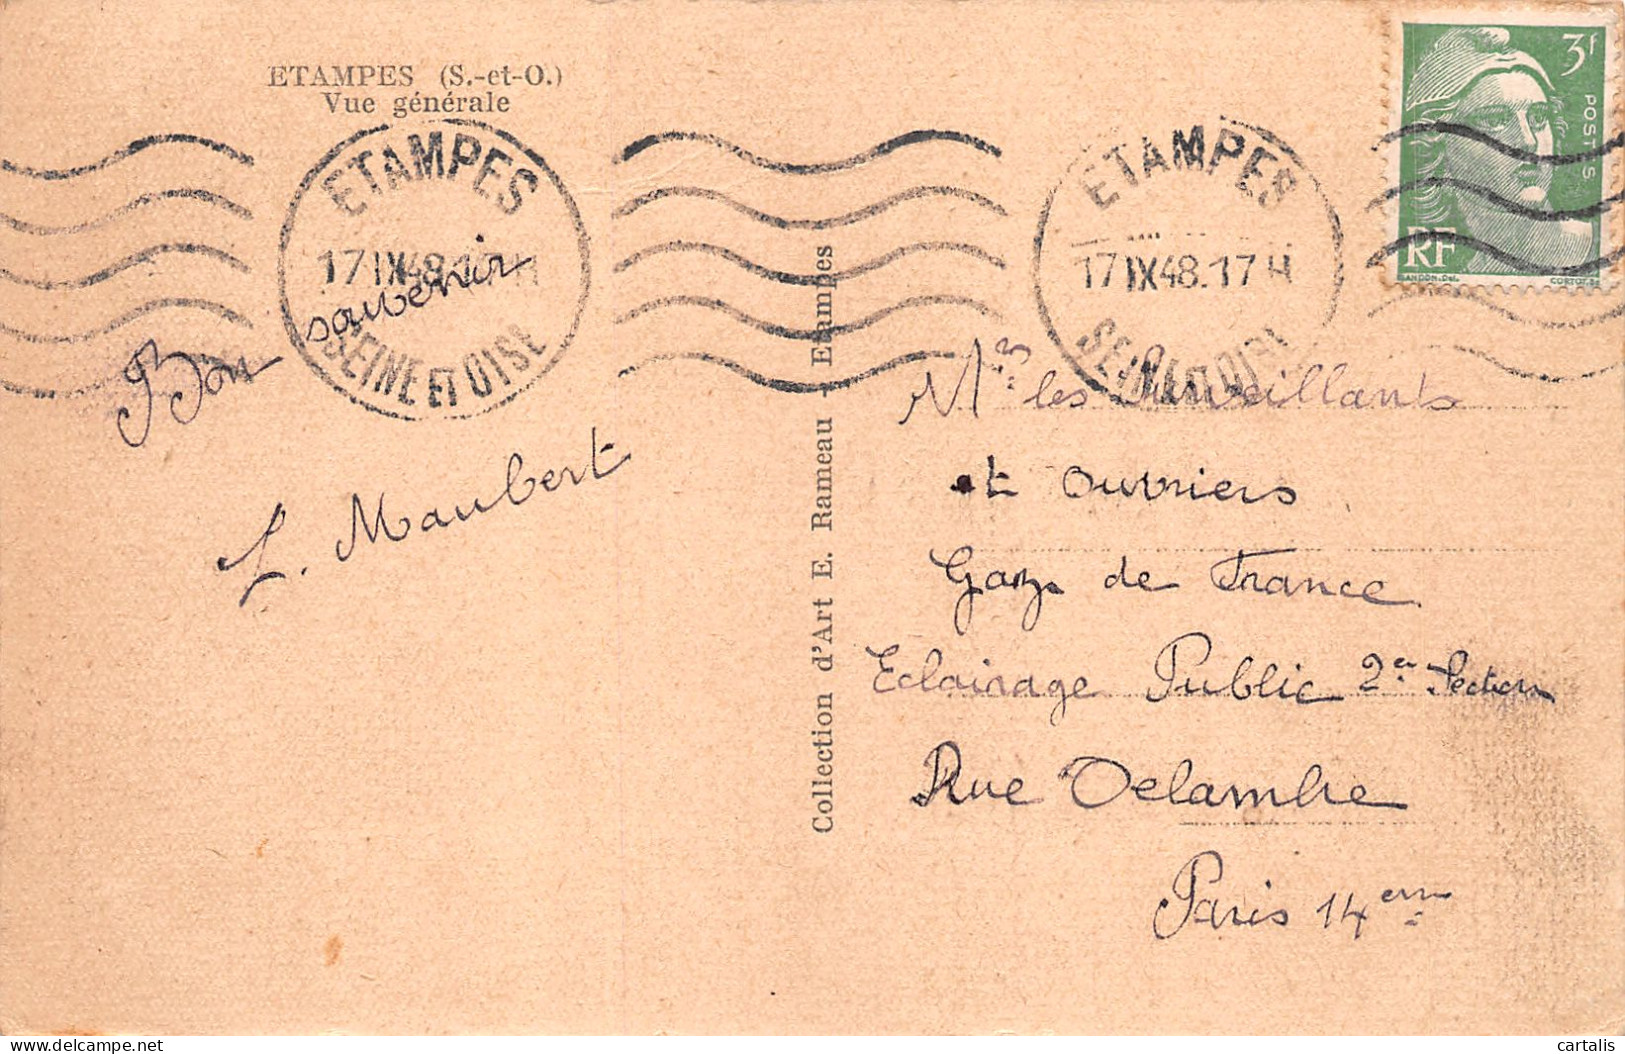 ETAMPES (S.-et-O.)
Vue générale
ETAMPES
17 IX 48.17 H
SEINE ET OISE
Bon souvenir
L. Maubert
Collection d'Art E. Rameau - Etampes
ETAMPES
17 IX 48.17 H
SEINE ET OISE
3f
POSTES
RF
GANDON.Del.
Mrs les Surveillants
et ouvriers
Gaz de France
Eclairage Public 2er Section
Rue Delambre
Paris 14em
Delcampe.net
cartalis